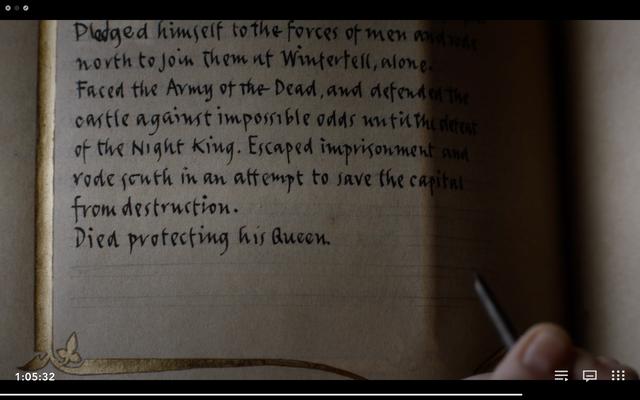 Pledged himself to the forces of men and rode
north to join them at Winterfell, alone.
Faced the Army of the Dead, and defended the
castle against impossible odds until the defeat
of the Night King. Escaped imprisonment and
rode south in an attempt to save the capital
from destruction.
Died protecting his Queen.
1:05:32